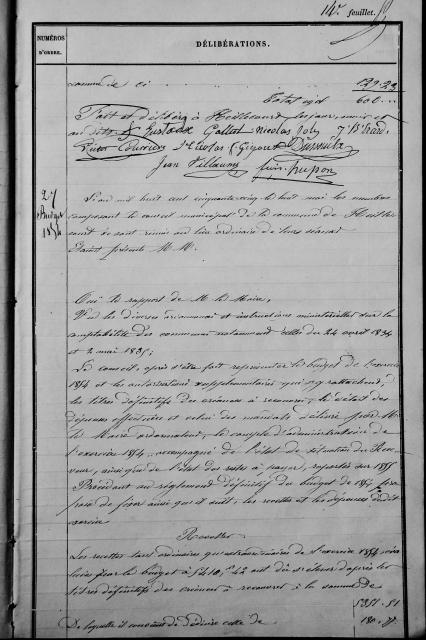 14e. feuillet.
NUMÉROS D'ORDRE.
DÉLIBÉRATIONS.
somme de ci 129.23
Total égal 600...
Fait et délibéré à les jour, mois et
an dits Gustave Gallet Nicolas Joly
Jean Villaume
27
Budget
1854
L'an mil huit cent cinquante cinq le huit mai les membres
composant le conseil municipal de la commune de
se sont réunis au lieu ordinaire de leurs séances
Étaient présents M.M.
Ouï le rapport de M. le Maire,
Vu les diverses ordonnances et instructions ministérielles sur la
comptabilité des communes notamment celles du 24 avril 1834
et 2 mai 1835;
Le conseil, après s'être fait représenter le budget de l'exercice
1854 et les autorisations supplémentaires qui s'y rattachent,
les titres définitifs des créances à recouvrer, le détail des
dépenses effectuées et celui des mandats délivrés par M.
le Maire ordonnateur, le compte d'administration de
l'exercice 1854, accompagné de l'état de situation du Rece-
veur, ainsi que de l'état des restes à payer, reportés sur 1855
Procédant au règlement définitif du budget de 1854 pro-
pose de fixer ainsi qu'il suit, les recettes et les dépenses dudit
exercice
Recettes
Les recettes tant ordinaires qu'extraordinaires de l'exercice 1854, éva-
luées par le budget à 5410, 42 ont dû s'élever d'après les
titres définitifs des créances à recouvrer, à la somme de
5351.51
De laquelle il convient de déduire celle de 180.